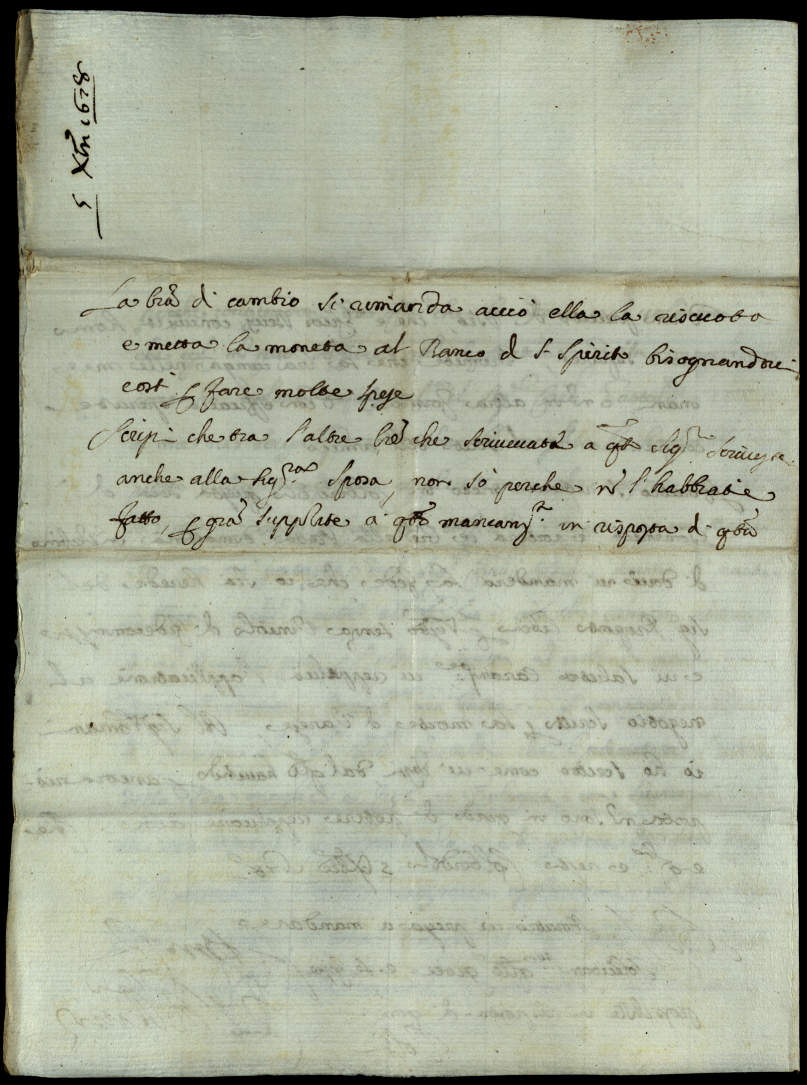 5 Xbre 1678
La lrã di cambio si rimanda acciò ella la riscuota
e metta la moneta al Banco d S. Spirito bisognandoci
costì p fare molte spese
Scrissi che tra l'altre lrẽ che scriveva a qti Sigri scrivesse
anche alla Sigra Sposa, non sò perche nõ l'habbiate
fatto, p grã supplite a qta mancanza in risposta di qta